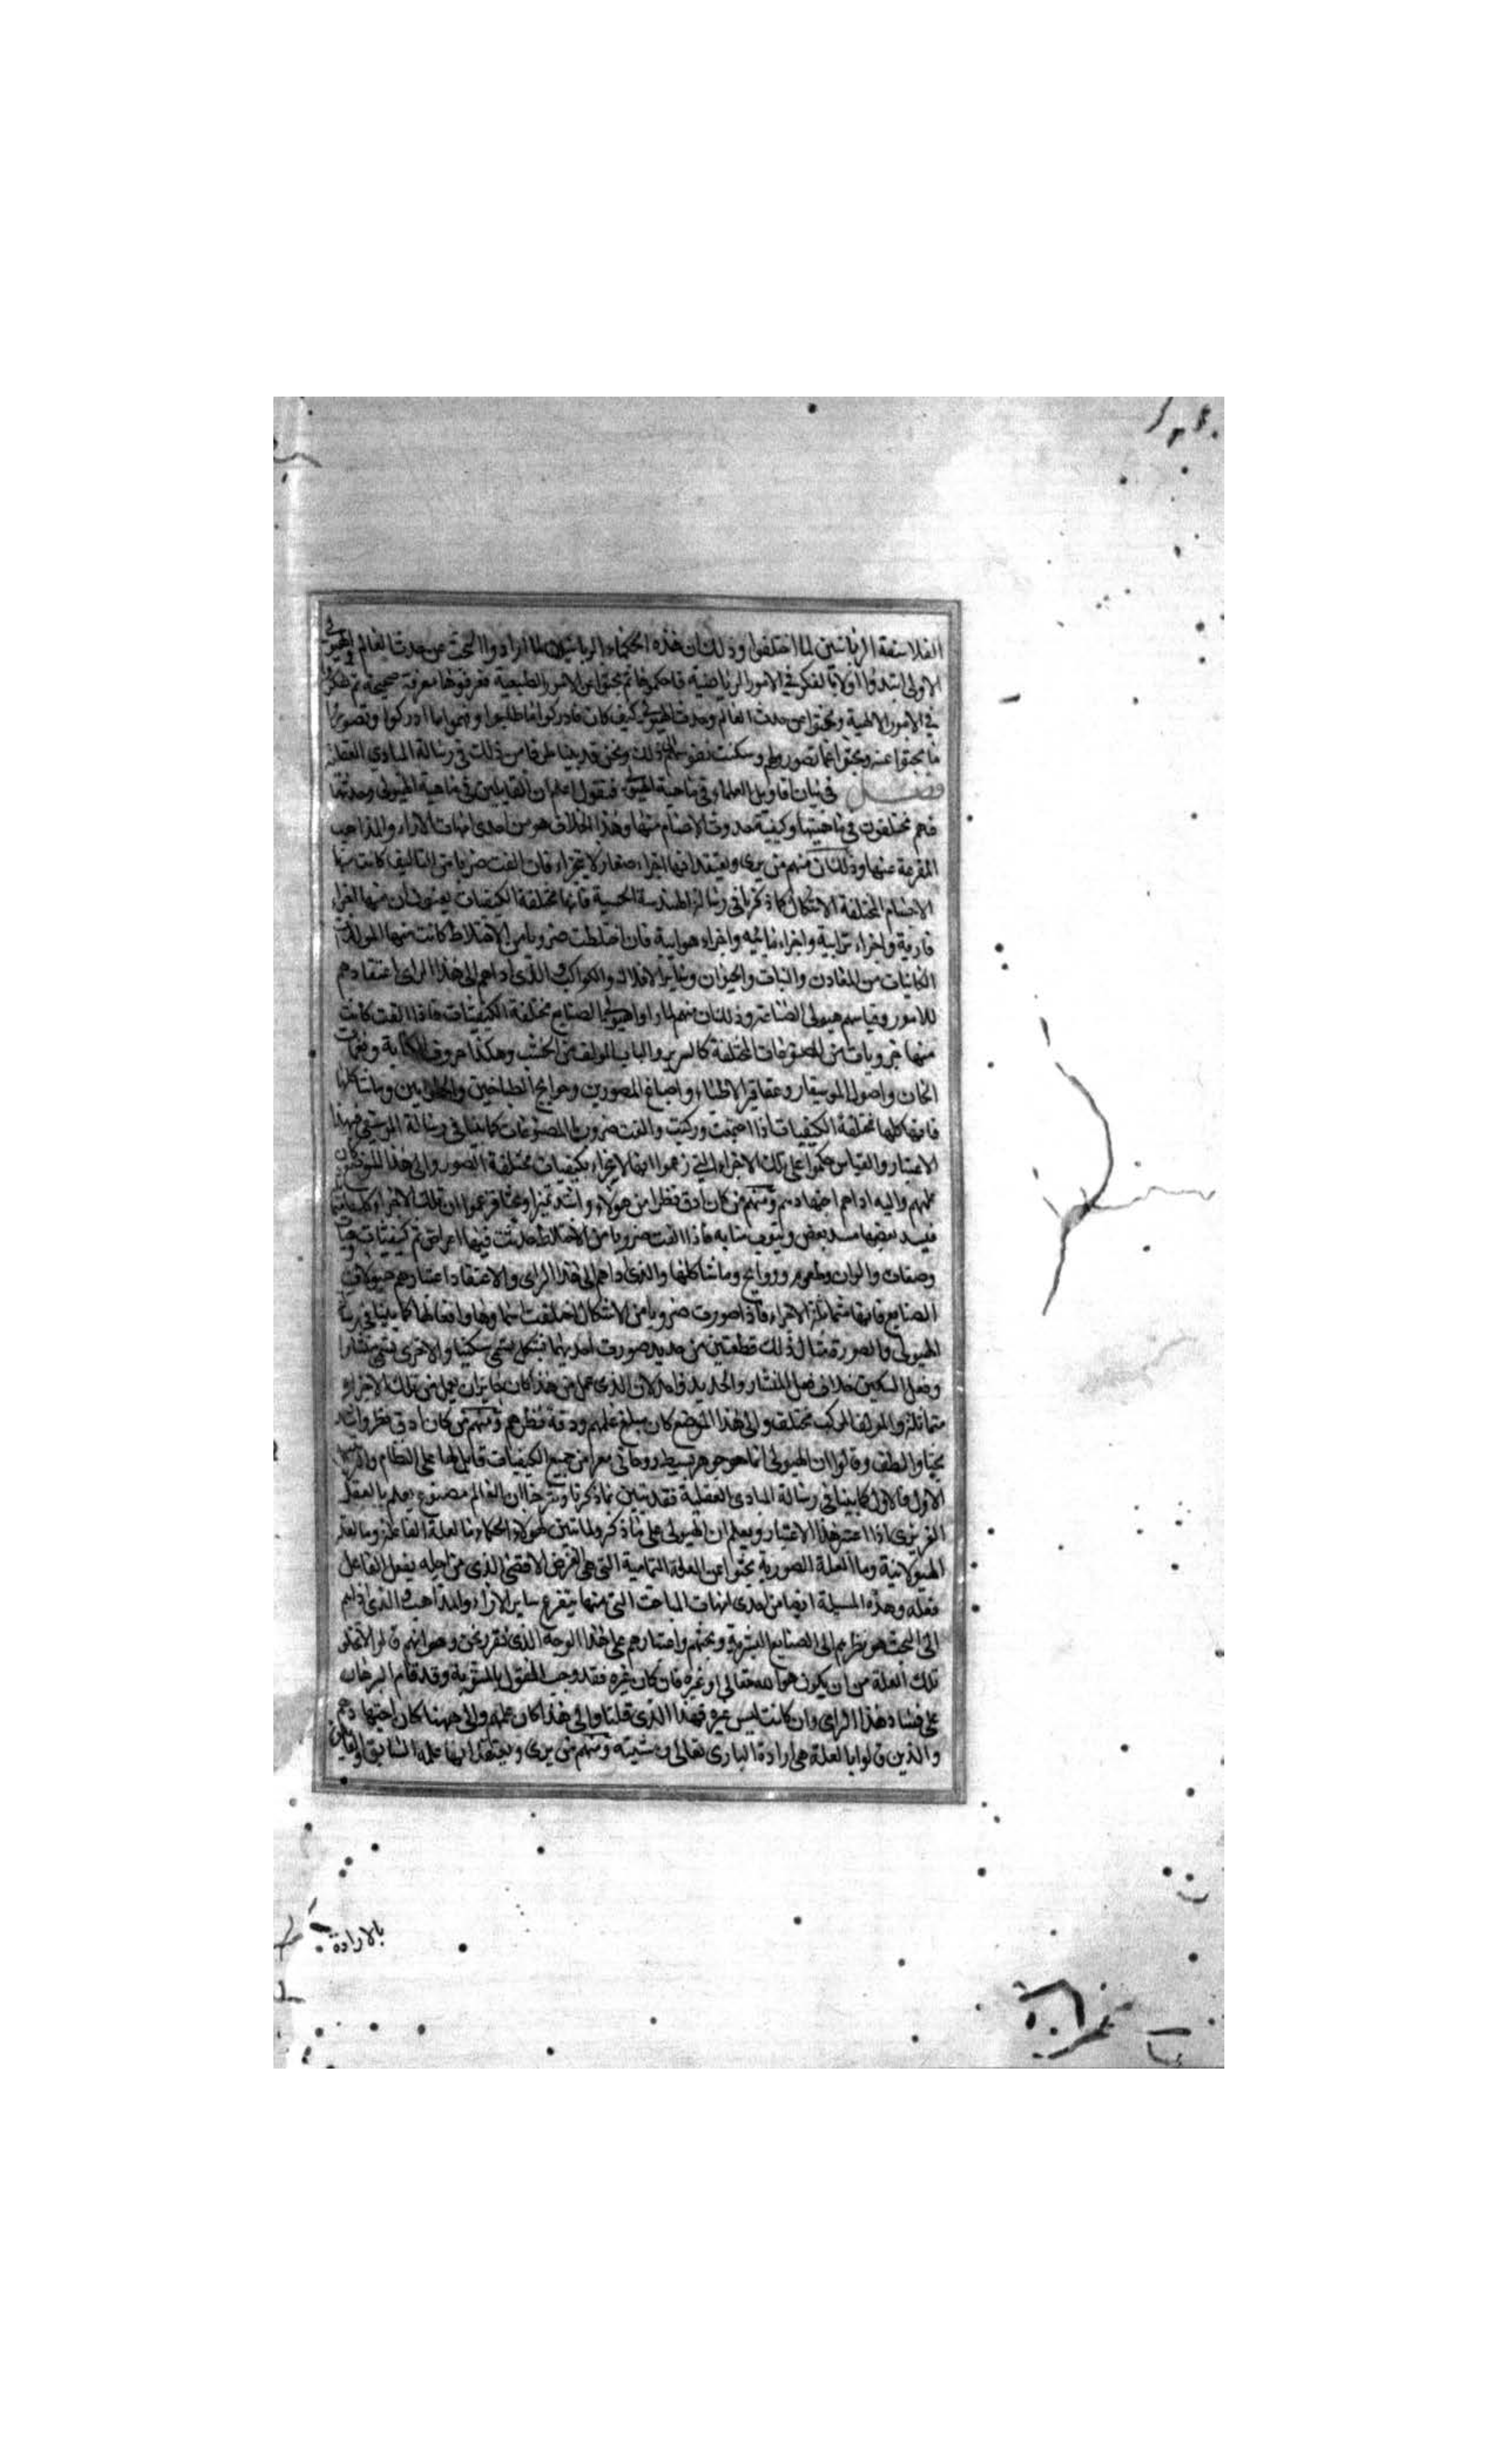 الفلاسفة الربانيين لما اختلفوا وذلك ان هذه الحكماء الربانيين لما ارادوا البحث عن حدث العالم والهيولى
الاولى ابتدؤا اولا بالفكر في الامور الرياضية فاحكموها ثم بحثوا عن الامور الطبيعية فعرفوها معرفة صحيحة ثم تفكروا
في الامور الالهية وبحثوا عن حدث العالم وحدث الهيولى كيف كان فادركوا ما طلبوا وفهموا ما ادركوا وتصوروا
ما بحثوا عنه وبحثوا عما تصوروه وسكنت نفوسهم الى ذلك ونحن قد بينا طرفا من ذلك في رسالة المبادى العقلية
فصل في بيان اقاويل العلماء في ماهية الهيولى فنقول اعلم ان القايلين في ماهية الهيولى وحدثها
فهم مختلفون في ماهيتها وكيفية حدوث الاجسام منها وهذا الخلاف هو من احدى امهات الاراء والمذاهب
المفرعة عنها وذلك ان منهم من يرى ويعتقد انها اجزاء صغار لا تتجزاء فان الفت ضربا من التاليف كانت منها
الاجسام المختلفة الاشكال كما ذكرنا في رسالة الهندسة الحسية فانها مختلفة الكيفيات يعنون ان منها اجزاء
نارية واجزاء ترابية واجزاء مائيه واجزاء هوايية فان اختلطت ضروبا من الاختلاط كانت منها المولدات
الكاينات من المعادن والنبات والحيوان وساير الافلاك والكواكب والذى اداهم الى هذا الراى اعتقادهم
للامور وقياسهم هيولى الصناعة وذلك ان منهم لما راوا هيولى الصنايع مختلفة الكيفيات فاذا الفت كانت
منها ضروبات من المصنوعات المختلفة كالسرير والباب المولف من الخشب وهكذا حروف الكتابة ونغمات
الحان واصول الموسيقار وعقاقير الاطباء واصباغ المصورين وحوايج الطباخين والحلوايين وما شاكلها
فانها كلها مختلفة الكيفيات اذا اجتمعت وركبت والفت ضروبا المصنوعات كما بينا في رسالة الموسيقى فبهذا
الاعتبار والقياس حكموا على تلك الاجزاء التي زعموا انها لا تجزاء بكيفيات مختلفة الصور والى هذا الموضع كان
علمهم واليه اداهم اجتهادهم ومنهم من كان ادق نظرا من هولاء واشد تميزا وبحثا فزعموا ان تلك الاجزاء كلها متماثلة
فيسد بعضها مسد بعض وينوب منابه فاذا الفت ضروبا من الاختلاط حدثت فيها اعراض ثم كيفيات وهيات
وصفات والوان وطعوم وروايح وما شاكلها والذى اداهم الى هذا الراى والاعتقاد اعتبارهم هيولات
الصنايع فانها متماثلة الاجزاء فاذا صورت ضروبا من الاشكال اختلفت اسماوها وافعالها كما بينا في رسالة
الهيولى والصورة مثال ذلك قطعتين من حديد صورت احديهما بشكل يسمى سكينا والاخرى يسمى منشارا
وفعل السكين خلاف فعل المنشار والحديد واحد لان الذى عمل من هذا كان جايز ان يعمل من تلك الاجزاء
متماثلة والمولف المركب مختلف والى هذا الموضع كان مبلغ علمهم ودقة نظرهم ومنهم من كان ادق نظرا واشد
بحثا والطف وقالوا ان الهيولى انما هو جوهر بسيط روحانى معرا من جميع الكيفيات قابل لها على النظام والترتيب
الاول فالاول كما بينا في رسالة المبادى العقلية فقد تبين مما ذكرنا وشرحنا ان العالم مصنوع يعلم بالعقل
الغريزى اذا اعتبر هذا الاعتبار ويعلم ان الهيولى على ما ذكر ولما تبين لهولاء الحكماء ما العلة الفاعلة وما العلة
الهيولانية وما العلة الصورية بحثوا عن العلة التمامية التى هي الغرض الاقصى الذى من اجله يفعل الفاعل
فعله وهذه المسيلة ايضا من احدى امهات المباحث التى منها يتفرع ساير الاراء والمذاهب والذى اداهم
الى البحث هو نظرهم الى الصنايع البشرية وبحثهم واعتبارهم على هذا الوجه الذى نقرره نحن وهو انهم قالوا لا تخلو
تلك العلة من ان يكون هو الله تعالى او غيره فان كان غيره فقد وجب القول بالمثنوية وقد قام البرهان
على فساد هذا الراى وان كانت ليس غيره فهذا الذى قلنا والى هذا كان علمهم والى ههنا كان اجتهادهم
والذين قالوا بالعلة هي ارادة البارى تعالى ومشيته ومنهم من يرى ويعتقد انها علمه السابق والقايلين
بالارادة